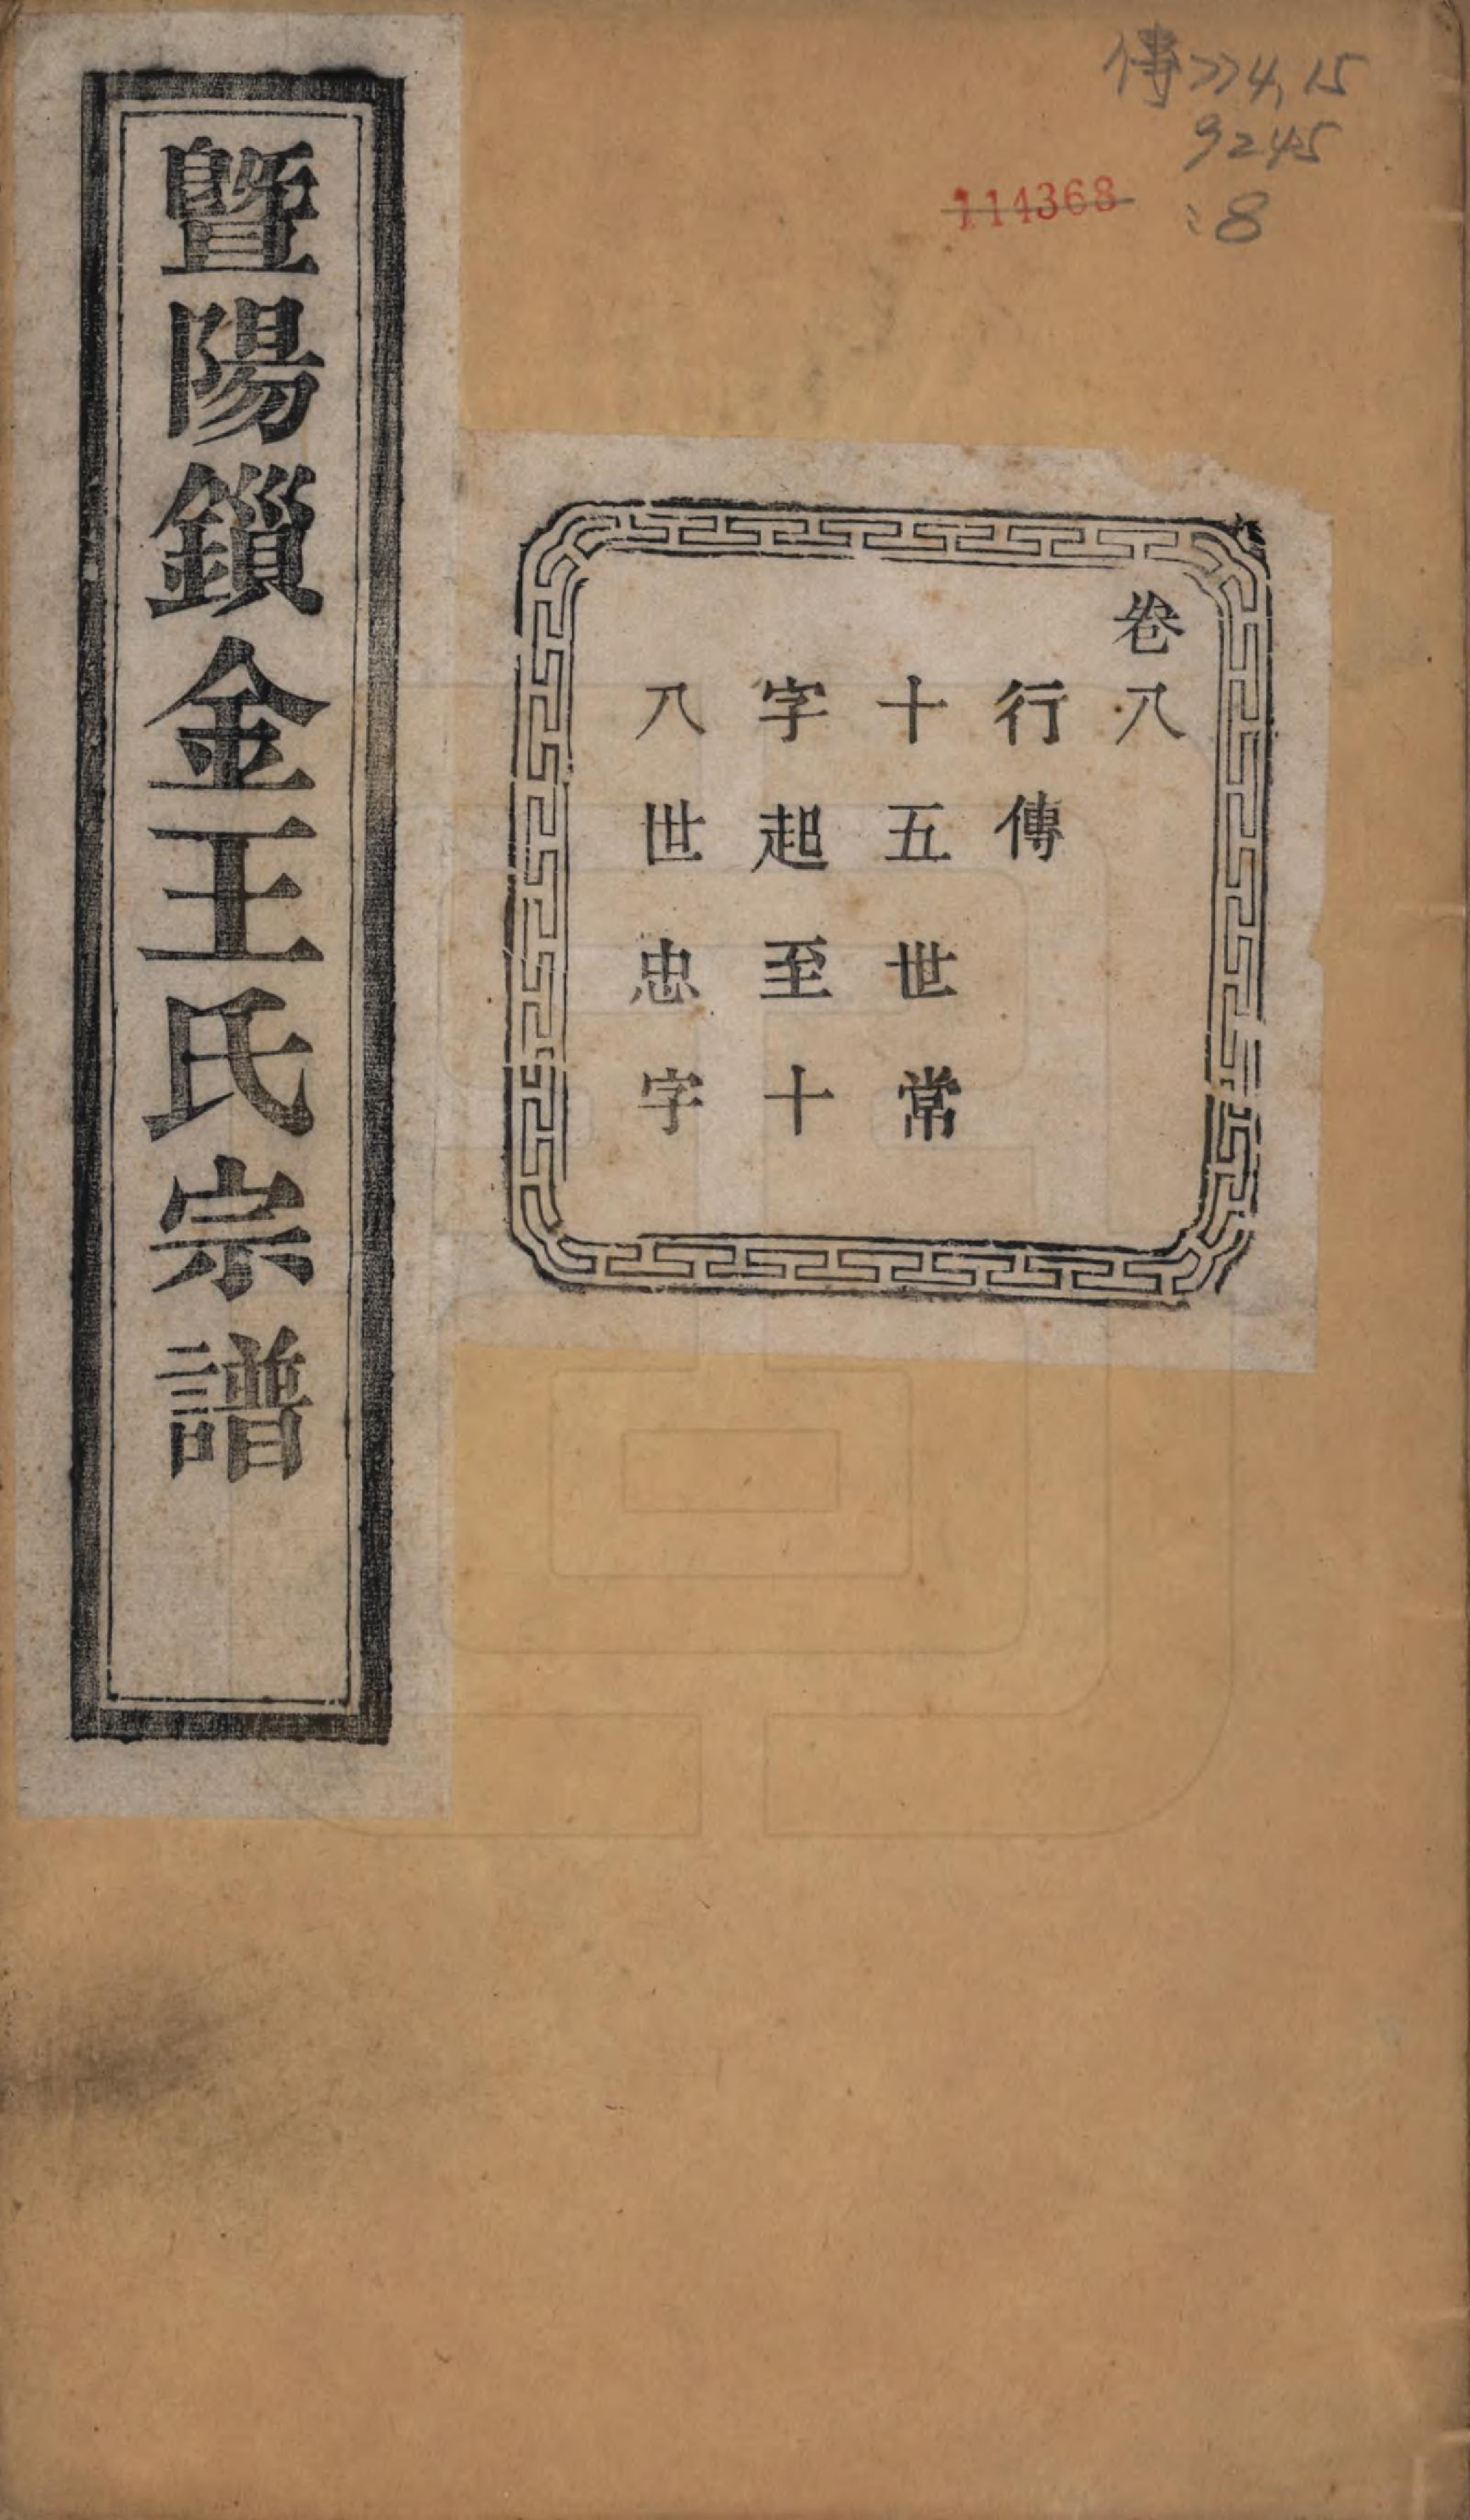 傳224.15
9245
:8
114368
卷八
行傳
十五世常
字起至十
八世忠字
暨陽鎻金王氏宗譜